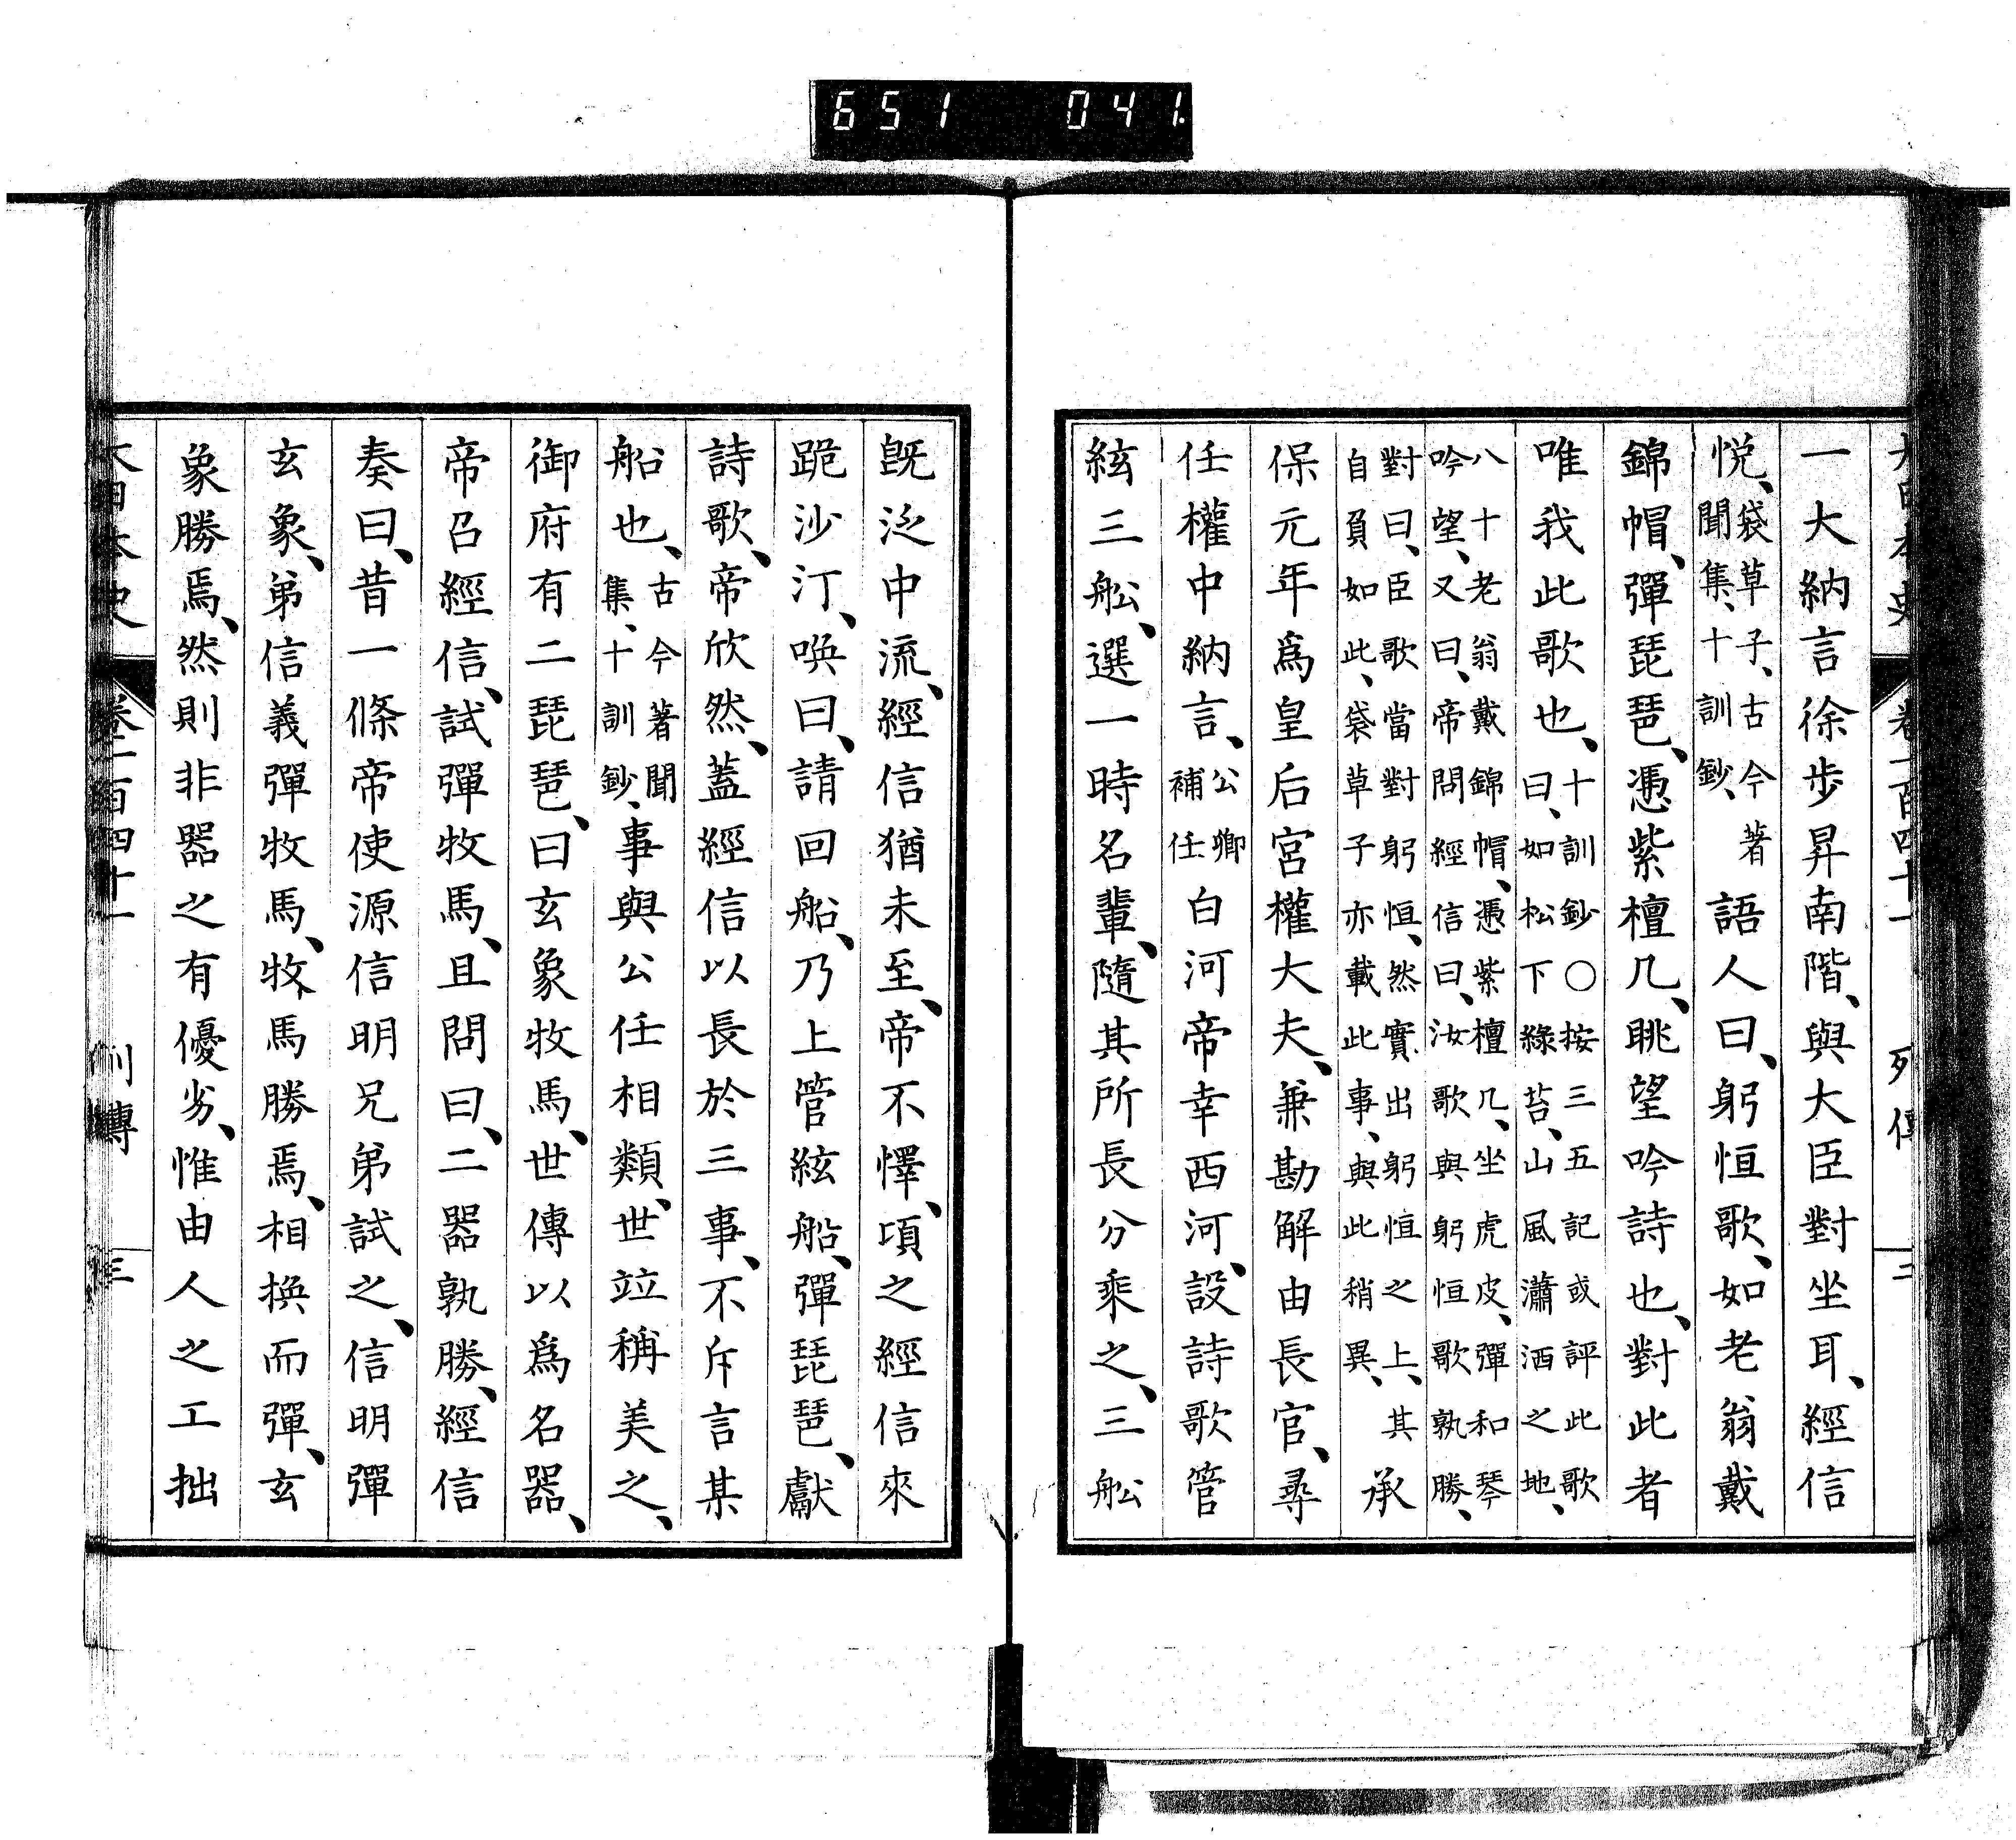 651 041.
大日本史 卷一百四十一 列傳 二
一大納言徐步昇南階、與大臣對坐耳、經信
悅、袋草子、古今著聞集、十訓鈔、語人曰、躬恒歌、如老翁戴
錦帽、彈琵琶、憑紫檀几、眺望吟詩也、對此者
唯我此歌也、十訓鈔〇按三五記或評此歌曰、如松下綠苔、山風瀟洒之地、
八十老翁戴錦帽、憑紫檀几、坐虎皮、彈和琴吟望、又曰、帝問經信曰、汝歌與躬恒歌孰勝、
對曰、臣歌當對躬恒、然實出躬恒之上、其自負如此、袋草子亦載此事、與此稍異、承
保元年爲皇后宮權大夫、兼勘解由長官、尋
任權中納言、公卿補任白河帝幸西河、設詩歌管
絃三舩、選一時名輩、隨其所長分乘之、三舩
旣泛中流、經信猶未至、帝不懌、頃之經信來
跪沙汀、喚曰、請回船、乃上管絃船、彈琵琶、獻
詩歌、帝欣然、蓋經信以長於三事、不斥言某
船也、古今著聞集、十訓鈔、事與公任相類、世竝稱美之、
御府有二琵琶、曰玄象牧馬、世傳以爲名器、
帝召經信、試彈牧馬、且問曰、二器孰勝、經信
奏曰、昔一條帝使源信明兄弟試之、信明彈
玄象、弟信義彈牧馬、牧馬勝焉、相換而彈、玄
象勝焉、然則非器之有優劣、惟由人之工拙
大日本史 卷一百四十一 列傳 三